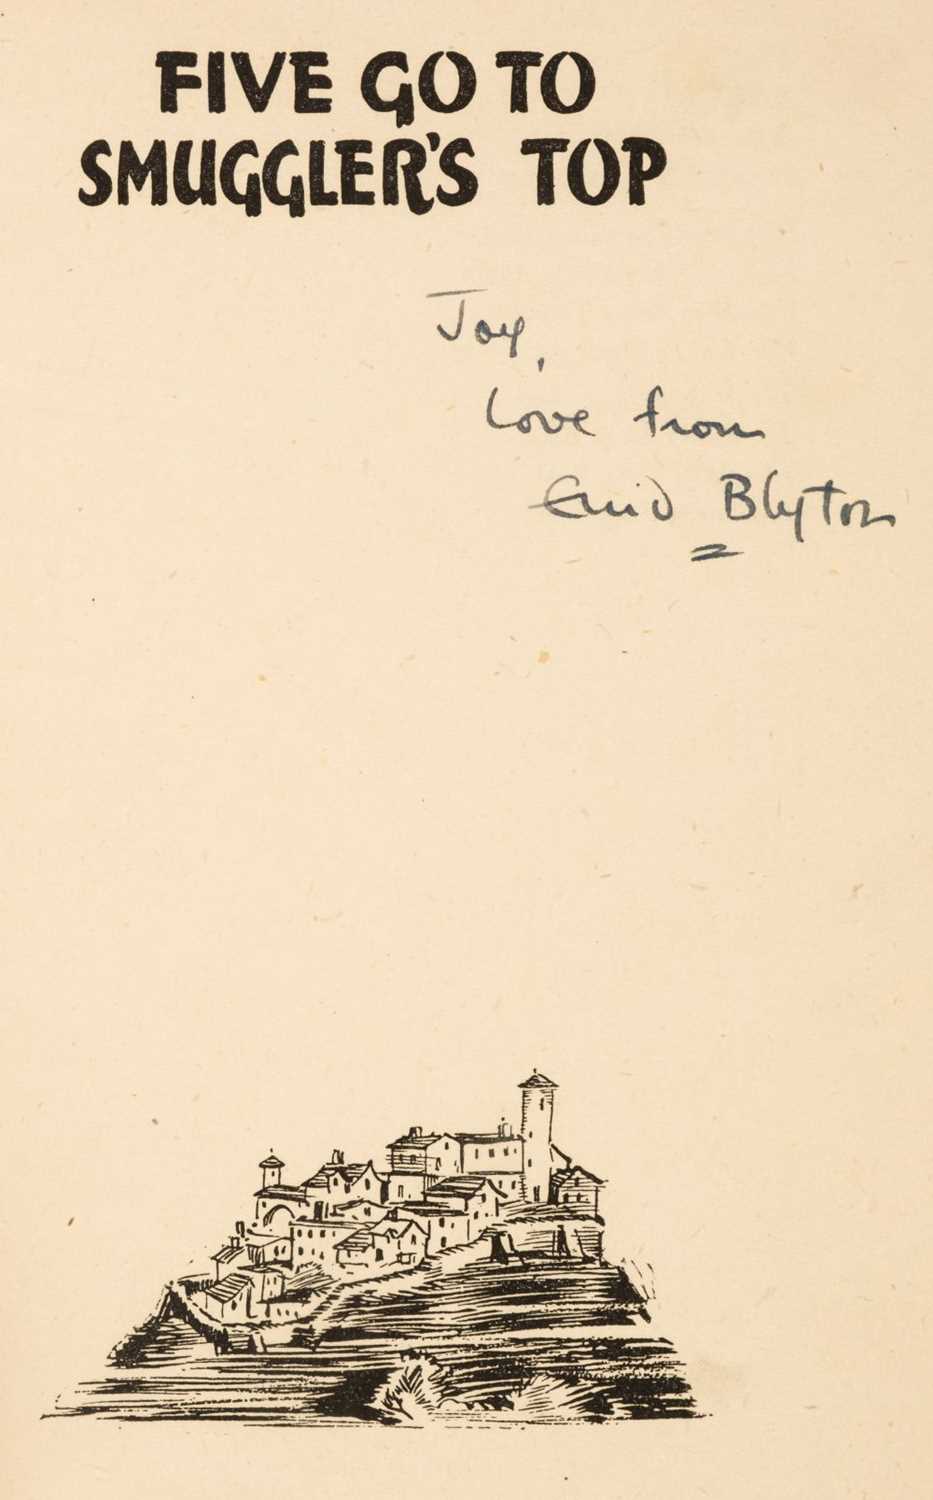 FIVE GO TO
SMUGGLER'S TOP
Joy,
Love from
Enid Blyton